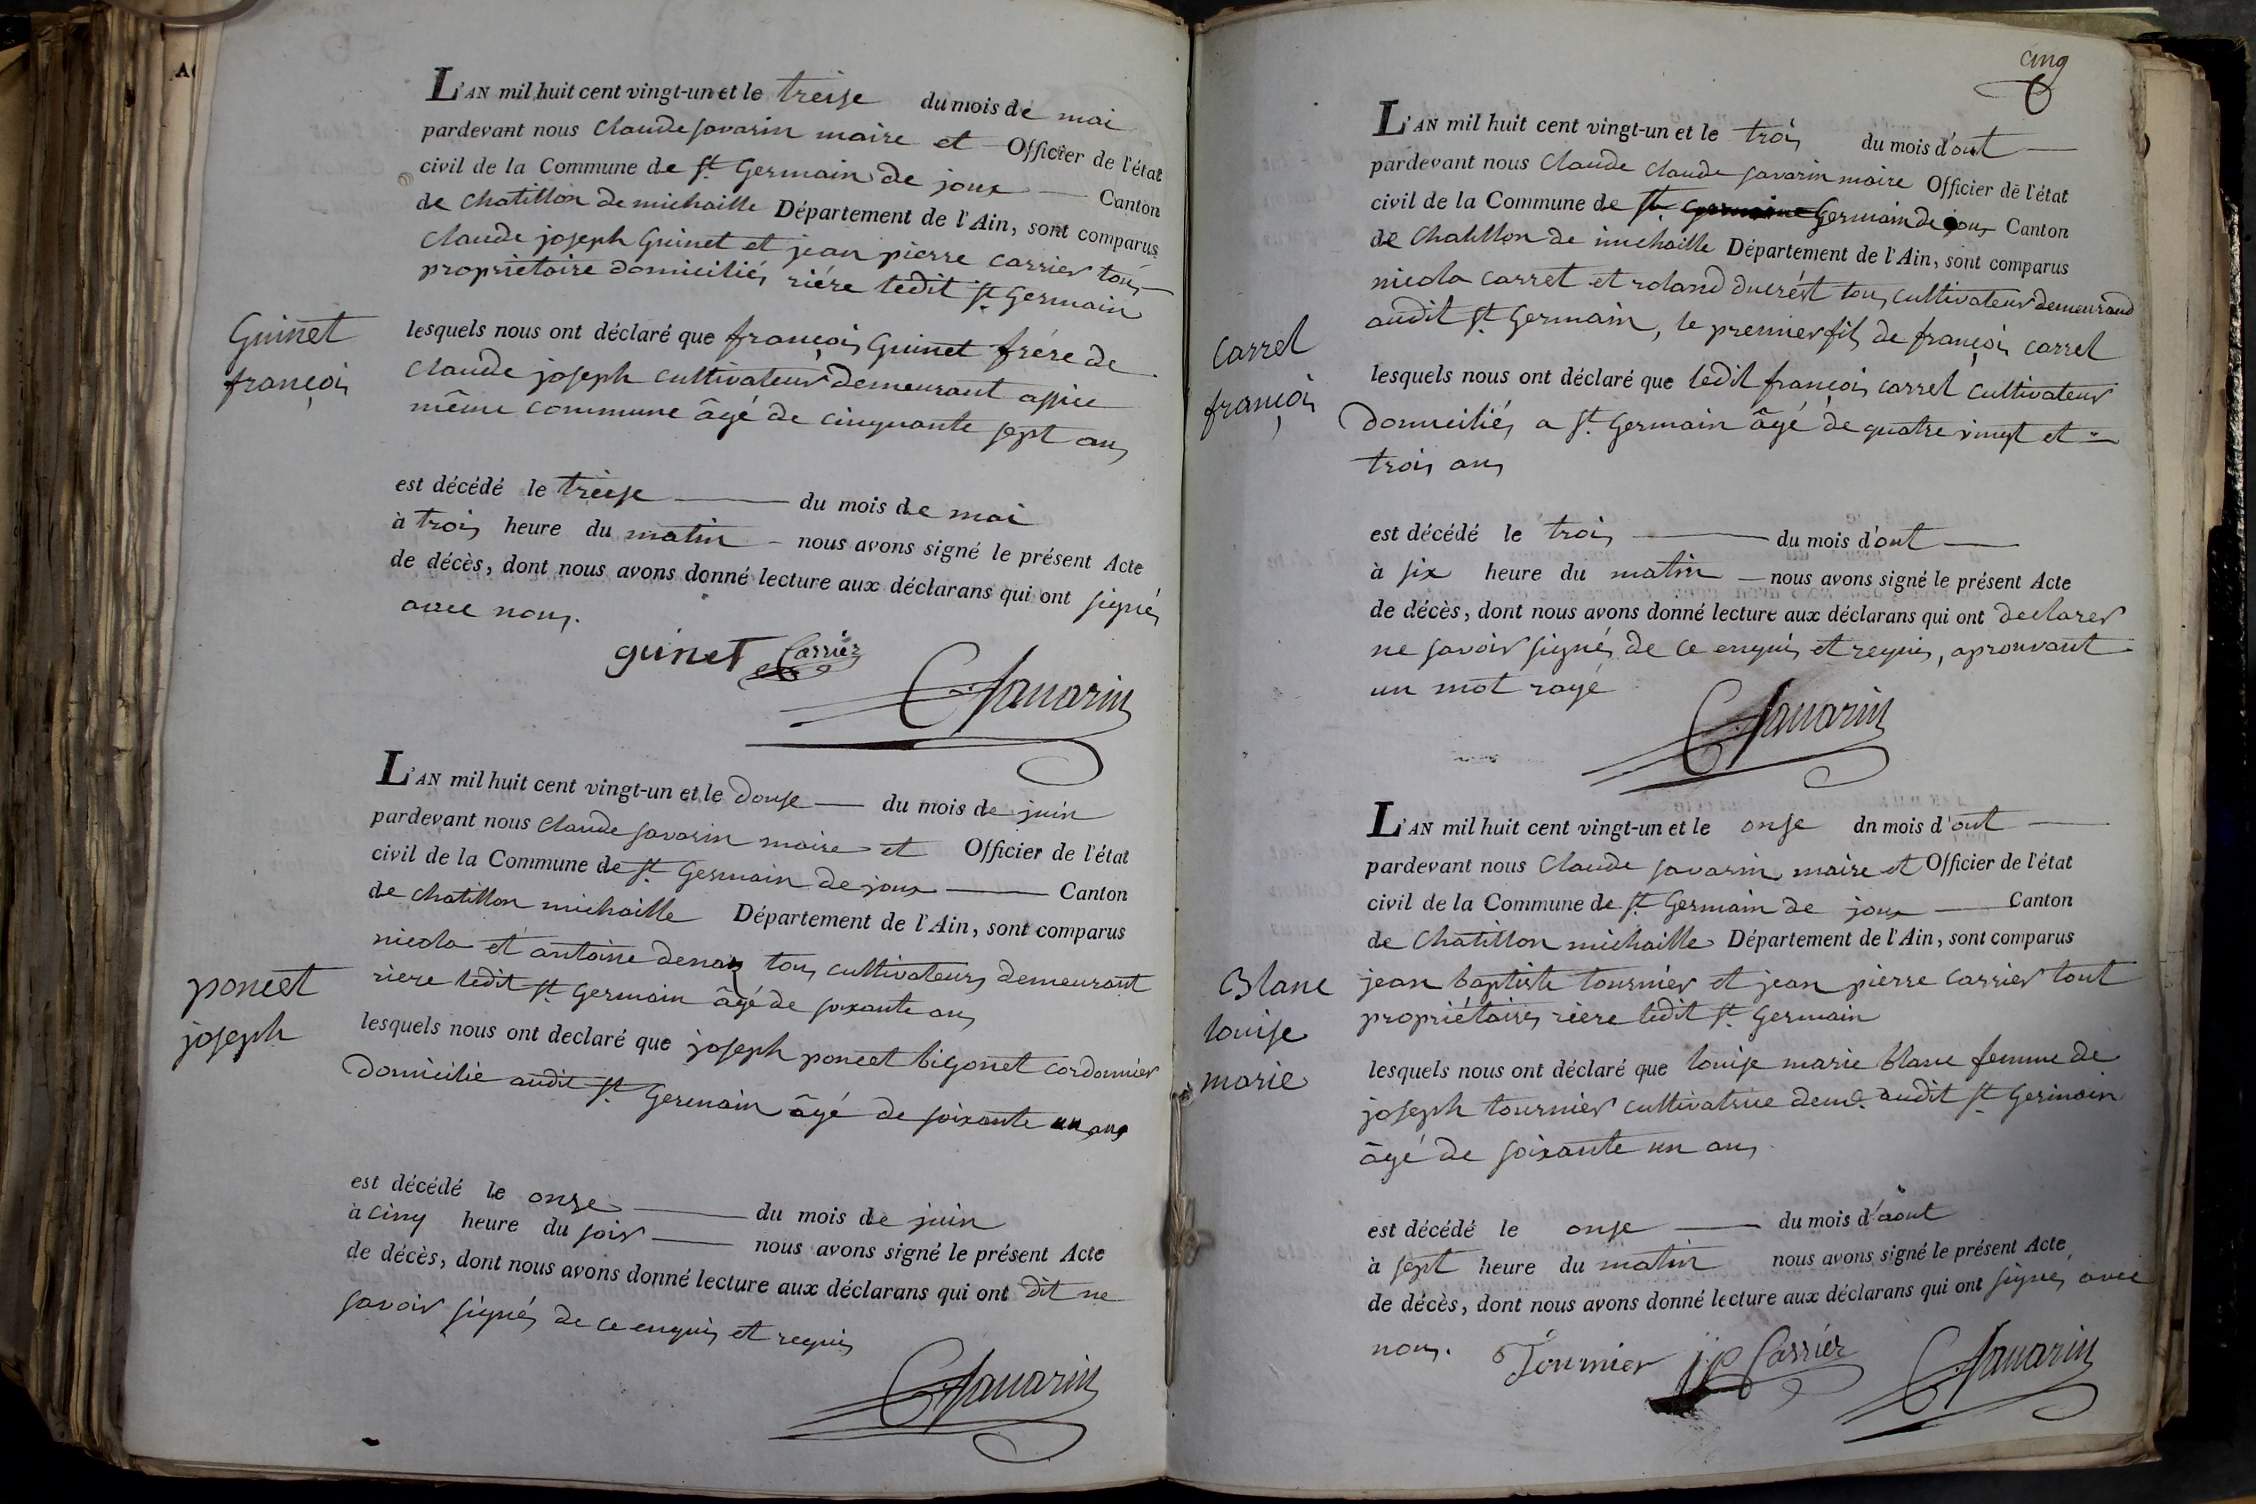 L'AN mil huit cent vingt-un et le treise du mois de mai
pardevant nous Claude Savarin maire et Officier de l'état
civil de la Commune de St Germain de joux Canton
de Chatillon de michaille Département de l'Ain, sont comparus
Claude joseph Guinet et jean pierre carrier tous
proprietaire domiciliés riére ledit St Germain
Guinet
françois
lesquels nous ont déclaré que françois Guinet frére de
Claude joseph cultivateur demeurant
même commune âgé de cinquante sept ans
est décédé le treise du mois de mai
à trois heure du matin nous avons signé le présent Acte
de décès, dont nous avons donné lecture aux déclarans qui ont signés
avec nous.
guinet Carrier
C Savarin
L'AN mil huit cent vingt-un et le douse du mois de juin
pardevant nous Claude Savarin maire et Officier de l'état
civil de la Commune de St Germain de joux Canton
de Chatillon michaille Département de l'Ain, sont comparus
nicola et antoine tous cultivateurs demeurant
riere ledit St Germain âgé de soixante ans
poncet
joseph
lesquels nous ont declaré que joseph poncet bigonet cordonnier
domicilié audit St Germain âgé de soixante un ans
est décédé le onze du mois de juin
à cinq heure du soir nous avons signé le présent Acte
de décès, dont nous avons donné lecture aux déclarans qui ont dit ne
savoir signés de ce enquis et requis
C Savarin
cinq
L'AN mil huit cent vingt-un et le trois du mois d'out
pardevant nous Claude Claude Savarin maire Officier de l'état
civil de la Commune de St Germain de joux Canton
de Chatillon de michaille Département de l'Ain, sont comparus
nicola carret et roland ducrést tous cultivateur demeurand
audit St Germain, le premier fils de françois carrel
carrel
françois
lesquels nous ont déclaré que ledit françois carrel cultivateur
domiciliés a St Germain âgé de quatre vingt et
trois ans
est décédé le trois du mois d'out
à six heure du matin nous avons signé le présent Acte
de décès, dont nous avons donné lecture aux déclarans qui ont declarer
ne savoir signés de ce enquis et requis, aprouvant
un mot rayé
C Savarin
L'AN mil huit cent vingt-un et le onse dn mois d'out
pardevant nous Claude Savarin maire et Officier de l'état
civil de la Commune de St Germain de joux Canton
de Chatillon michaille Département de l'Ain, sont comparus
jean baptiste tournier et jean pierre carrier tout
propriétaires riere ledit St Germain
Blanc
louise
marie
lesquels nous ont déclaré que louise marie blanc femme de
joseph tournier cultivatrice demt audit St Germain
âgé de soixante un ans
est décédé le onse du mois d'août
à sept heure du matin nous avons signé le présent Acte
de décès, dont nous avons donné lecture aux déclarans qui ont signés avec
nous.
Tournier jp Carrier C Savarin